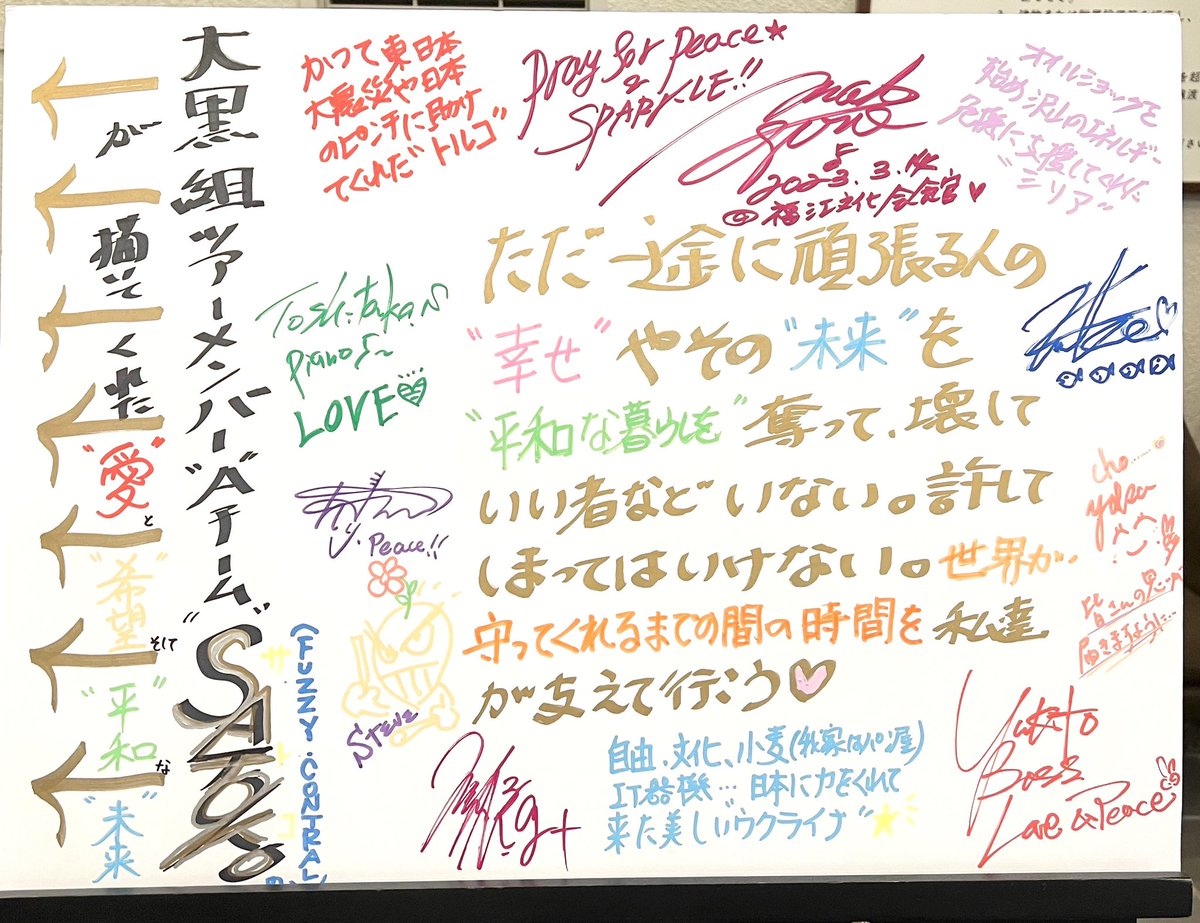 大黒組ツアーメンバー"Aチーム"
"SATOKO"
(FUZZY CONTROL)
サトコ
が描いてくれた"愛"と
"希望"そして
"平和"な
"未来"
かつて東日本
大震災や日本
のピンチに助け
てくれた"トルコ"
Pray for Peace★
&
SPARKLE!!
2023.3.14
@福江文化会館♥
オイルショックを
始め沢山のエネルギー
危機に支援してくれた
"シリア"
ただ一途に頑張る人の
"幸せ"やその"未来"を
"平和な暮らしを"奪って、壊して
いい者などいない。許して
しまってはいけない。世界が…
守ってくれるまでの間の時間を私達
が支えて行こう♡
Toshitaka
Piano
LOVE♡
Peace!!
Steve
cho……
yabai
皆さんの思いが
届きますように…
自由、文化、小麦(我家はパン屋)
IT器機…日本に力をくれて
来た美しい"ウクライナ"★
Yukito
Boss
Love & Peace